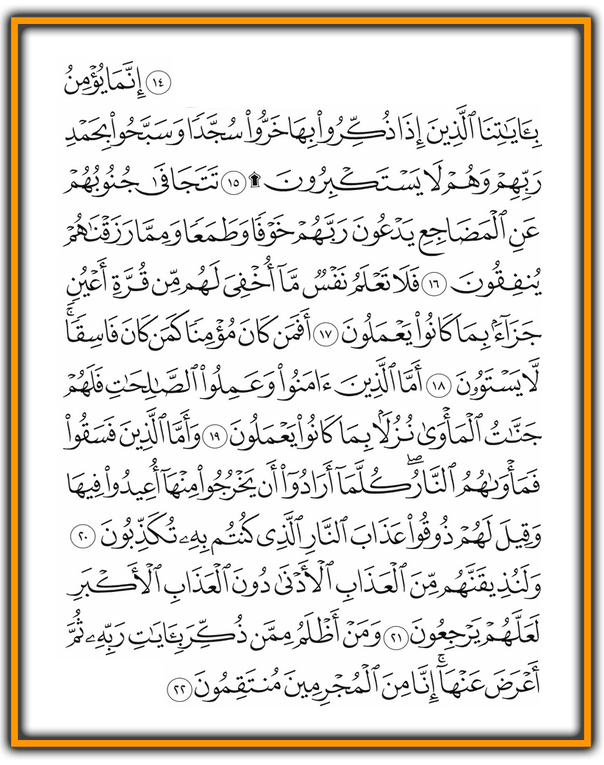 ١٤ إِنَّمَا يُؤْمِنُ
بِـَٔايَٰتِنَا ٱلَّذِينَ إِذَا ذُكِّرُوا۟ بِهَا خَرُّوا۟ سُجَّدًا وَسَبَّحُوا۟ بِحَمْدِ
رَبِّهِمْ وَهُمْ لَا يَسْتَكْبِرُونَ ۩ ١٥ تَتَجَافَىٰ جُنُوبُهُمْ
عَنِ ٱلْمَضَاجِعِ يَدْعُونَ رَبَّهُمْ خَوْفًا وَطَمَعًا وَمِمَّا رَزَقْنَٰهُمْ
يُنفِقُونَ ١٦ فَلَا تَعْلَمُ نَفْسٌ مَّآ أُخْفِىَ لَهُم مِّن قُرَّةِ أَعْيُنٍ
جَزَآءًۢ بِمَا كَانُوا۟ يَعْمَلُونَ ١٧ أَفَمَن كَانَ مُؤْمِنًا كَمَن كَانَ فَاسِقًا ۚ
لَّا يَسْتَوُۥنَ ١٨ أَمَّا ٱلَّذِينَ ءَامَنُوا۟ وَعَمِلُوا۟ ٱلصَّٰلِحَٰتِ فَلَهُمْ
جَنَّٰتُ ٱلْمَأْوَىٰ نُزُلًۢا بِمَا كَانُوا۟ يَعْمَلُونَ ١٩ وَأَمَّا ٱلَّذِينَ فَسَقُوا۟
فَمَأْوَىٰهُمُ ٱلنَّارُ ۖ كُلَّمَآ أَرَادُوٓا۟ أَن يَخْرُجُوا۟ مِنْهَآ أُعِيدُوا۟ فِيهَا
وَقِيلَ لَهُمْ ذُوقُوا۟ عَذَابَ ٱلنَّارِ ٱلَّذِى كُنتُم بِهِۦ تُكَذِّبُونَ ٢٠
وَلَنُذِيقَنَّهُم مِّنَ ٱلْعَذَابِ ٱلْأَدْنَىٰ دُونَ ٱلْعَذَابِ ٱلْأَكْبَرِ
لَعَلَّهُمْ يَرْجِعُونَ ٢١ وَمَنْ أَظْلَمُ مِمَّن ذُكِّرَ بِـَٔايَٰتِ رَبِّهِۦ ثُمَّ
أَعْرَضَ عَنْهَآ ۚ إِنَّا مِنَ ٱلْمُجْرِمِينَ مُنتَقِمُونَ ٢٢